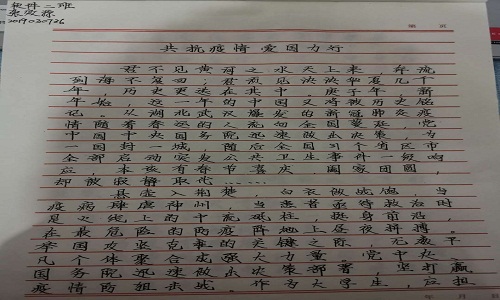 软件二班
2019020726
第 页
共抗疫情 爱国力行
君不见黄河之水天上来,奔流
到海不复回;君不见泱泱华夏几千
年,历史更迭在其中。庚子年,新
年始,这一年的中国又将被历史铭
记。从湖北武汉爆发的新冠肺炎疫
情随着春运的人流向全国蔓延,党
中国中央国务院迅速做出决策,为
一国封一城,随后全国31个省区市
全部启动突发公共卫生事件一级响
应,本该有春节喜庆、阖家团圆,
却被寂静取代……
悬壶入荆楚,白衣做战袍。当
疫病肆虐神州,当患者亟待救治时
是之线上的中流砥柱,挺身前沿,
在最危险的防疫阵地上昼夜拼搏。
举国攻坚克难的关键之际,无数平
凡个体聚合成强大力量。党中央、
国务院迅速做出决策部署,坚打赢
疫情防狙击战。作为大学生,应担